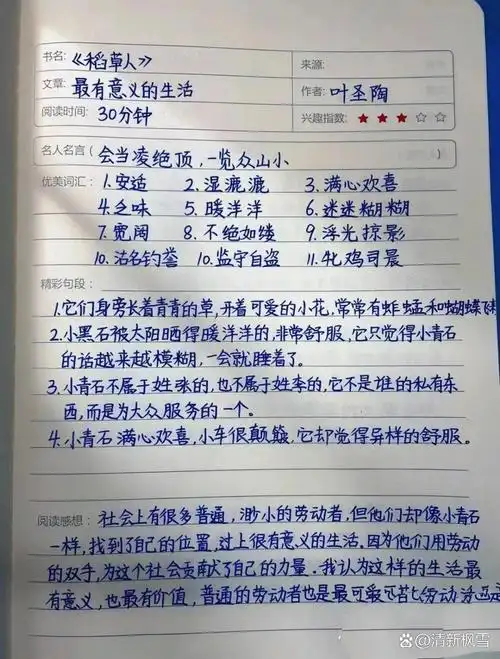 书名: 《稻草人》
来源:
文章: 最有意义的生活
作者: 叶圣陶
阅读时间: 30分钟
兴趣指数: ★★★☆☆
名人名言( 会当凌绝顶,一览众山小 )
优美词汇: 1.安适 2.湿漉漉 3.满心欢喜
4.乏味 5.暖洋洋 6.迷迷糊糊
7.宽阔 8.不绝如缕 9.浮光掠影
10.沽名钓誉 10.监守自盗 11.牝鸡司晨
精彩句段:
1.它们身旁长着青青的草,开着可爱的小花,常常有蚱蜢和蝴蝶飞
2.小黑石被太阳晒得暖洋洋的,非常舒服,它只觉得小青石
的话越来越模糊,一会就睡着了。
3.小青石不属于姓张的,也不属于姓李的,它不是谁的私有东
西,而是为大众服务的一个。
4.小青石满心欢喜,小车很颠簸,它却觉得异样的舒服。
阅读感想: 社会上有很多普通,渺小的劳动者,但他们却像小青石
一样,找到了自己的位置,过上很有意义的生活.因为他们用劳动
的双手,为这个社会贡献了自己的力量.我认为这样的生活最
有意义,也最有价值,普通的劳动者也是最可
百家号/清新枫雪